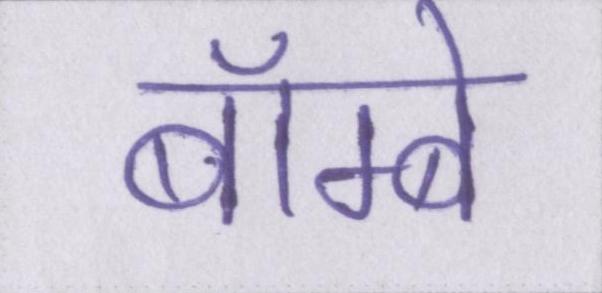 बॉम्बे